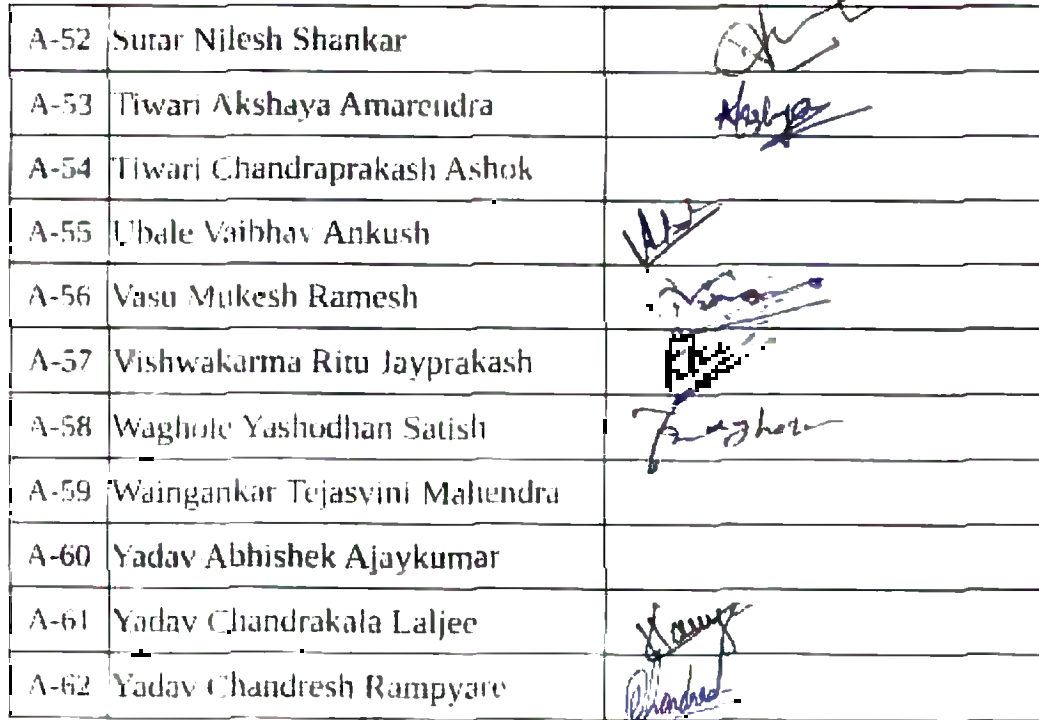 A-52 Sutar Nilesh Shankar
A-53 Tiwari Akshaya Amarendra Akshaya
A-54 Tiwari Chandraprakash Ashok
A-55 Ubale Vaibhav Ankush
A-56 Vasu Mukesh Ramesh
A-57 Vishwakarma Ritu Jayprakash
A-58 Waghole Yashodhan Satish
A-59 Waingankar Tejasvini Mahendra
A-60 Yadav Abhishek Ajaykumar
A-61 Yadav Chandrakala Laljee
A-62 Yadav Chandresh Rampyare